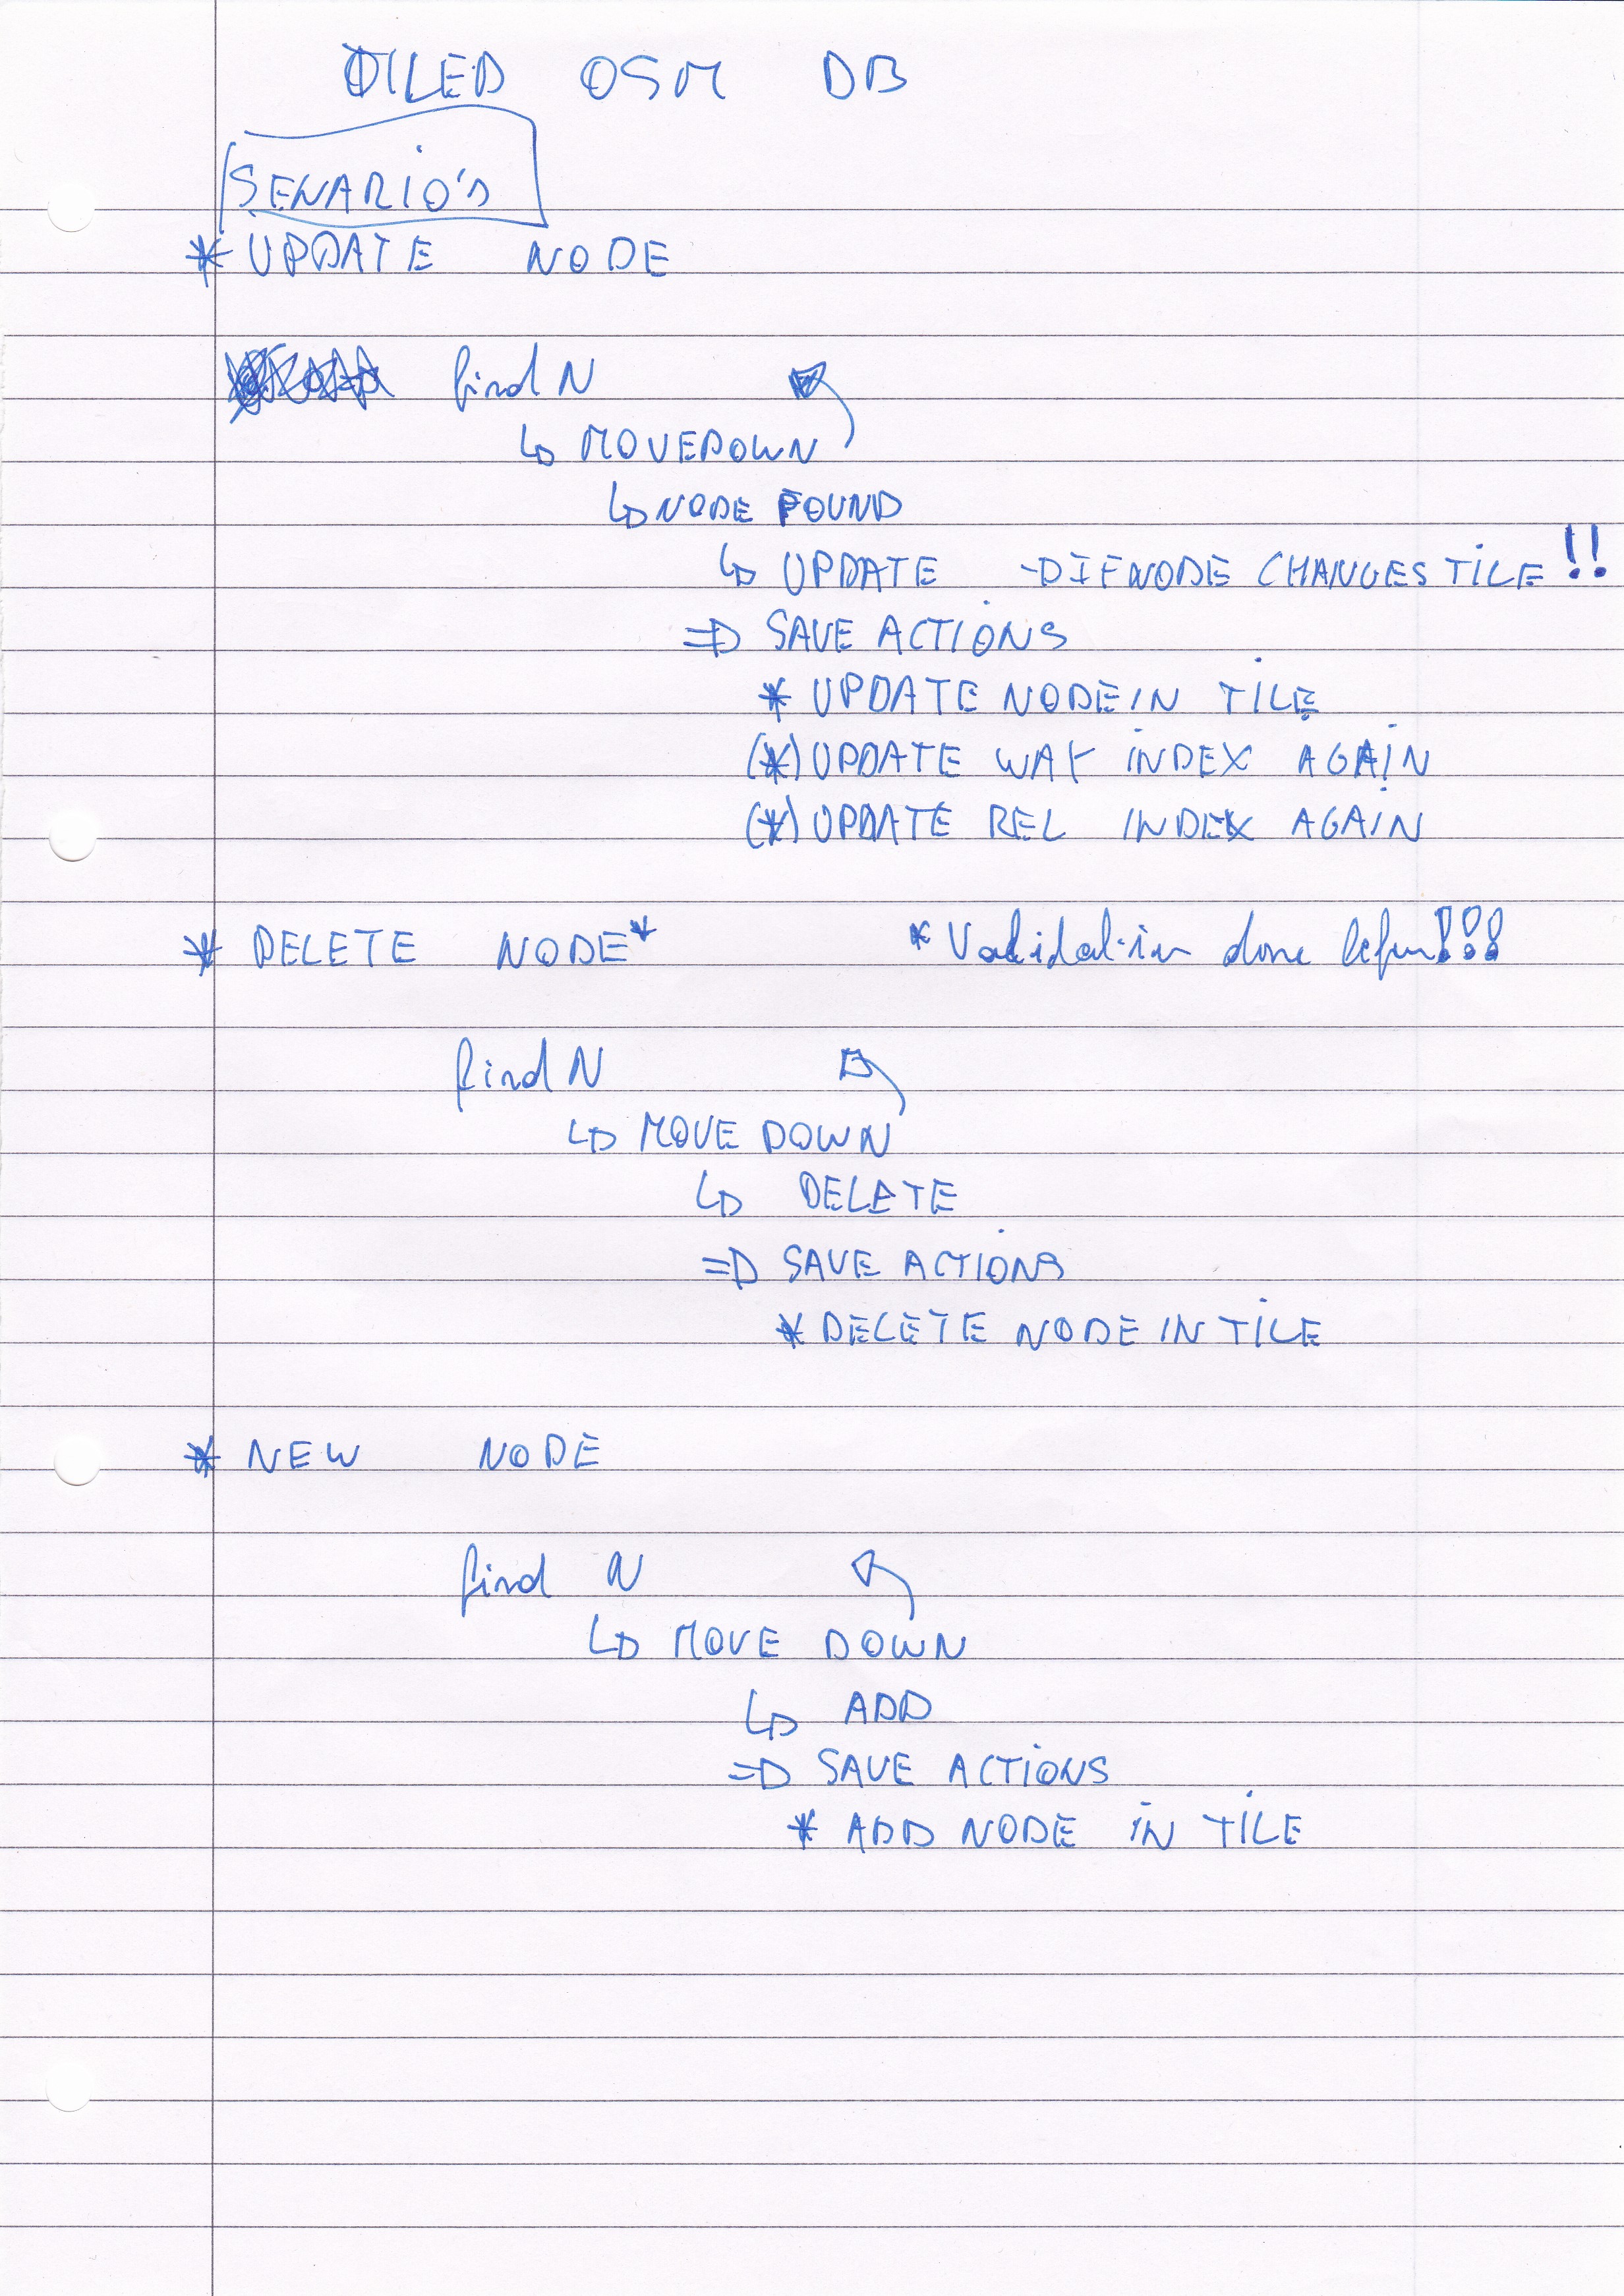 TILED OSM DB
SENARIO'S
* UPDATE NODE
find N
↳ MOVEDOWN
↳ NODE FOUND
↳ UPDATE → IF NODE CHANGES TILE !!
⇒ SAVE ACTIONS
* UPDATE NODE IN TILE
(*) UPDATE WAY INDEX AGAIN
(*) UPDATE REL INDEX AGAIN
* DELETE NODE* * Validation done before!!!
find N
↳ MOVE DOWN
↳ DELETE
⇒ SAVE ACTIONS
* DELETE NODE IN TILE
* NEW NODE
find N
↳ MOVE DOWN
↳ ADD
⇒ SAVE ACTIONS
* ADD NODE IN TILE